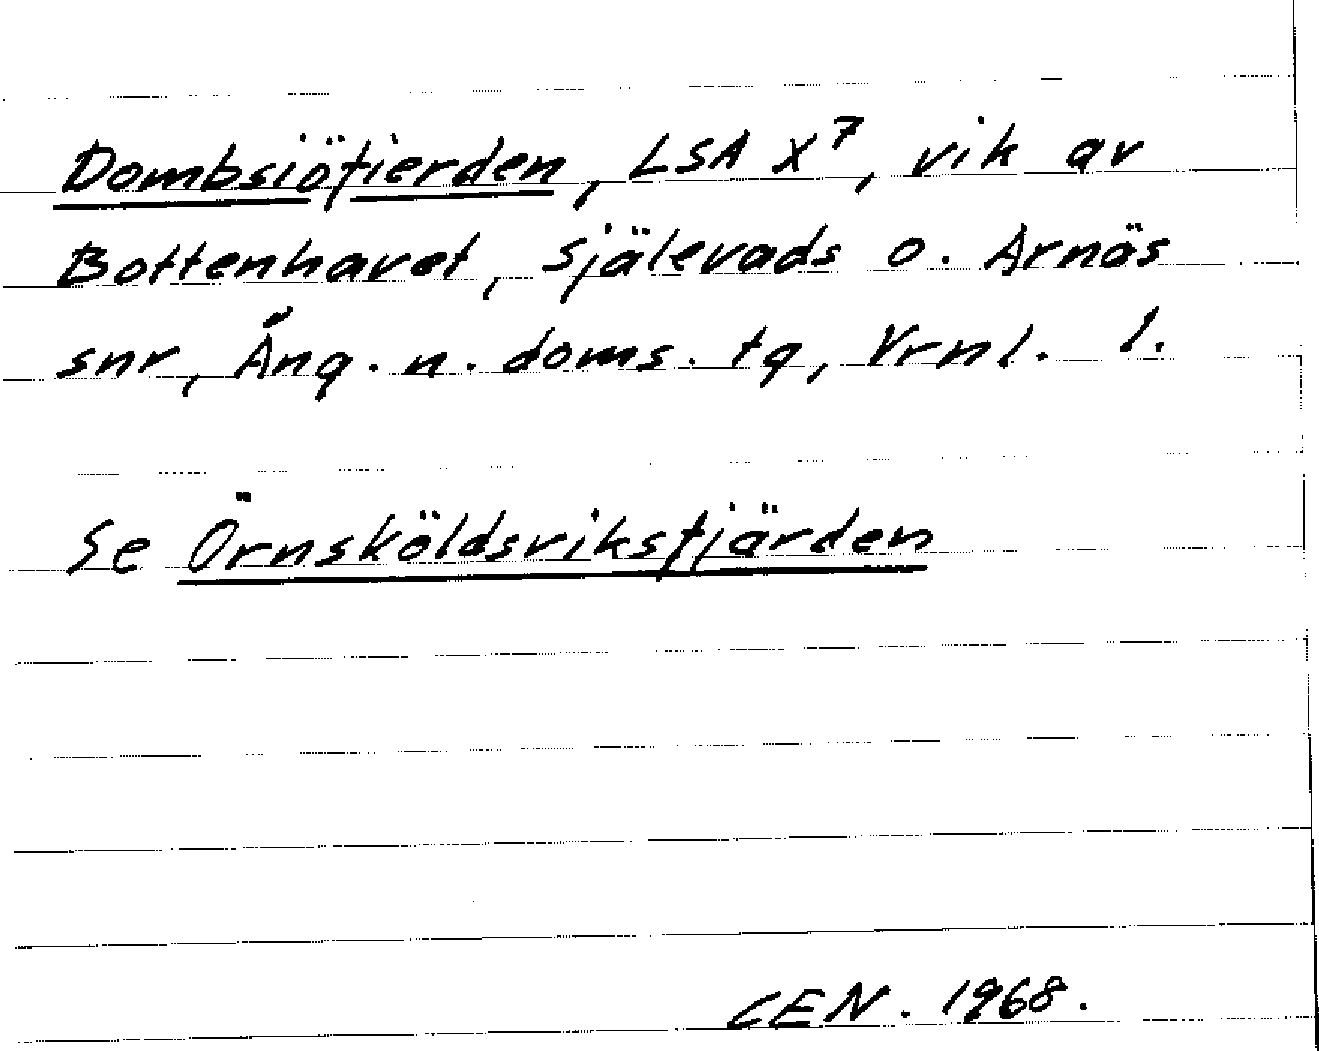 Dombsiöfierden, LSA X⁷, vik av
Bottenhavet, Själevads o. Arnäs
snr, Ång. n. doms. tg, Vrnl. l.
Se Örnsköldsviksfjärden
CEN. 1968.